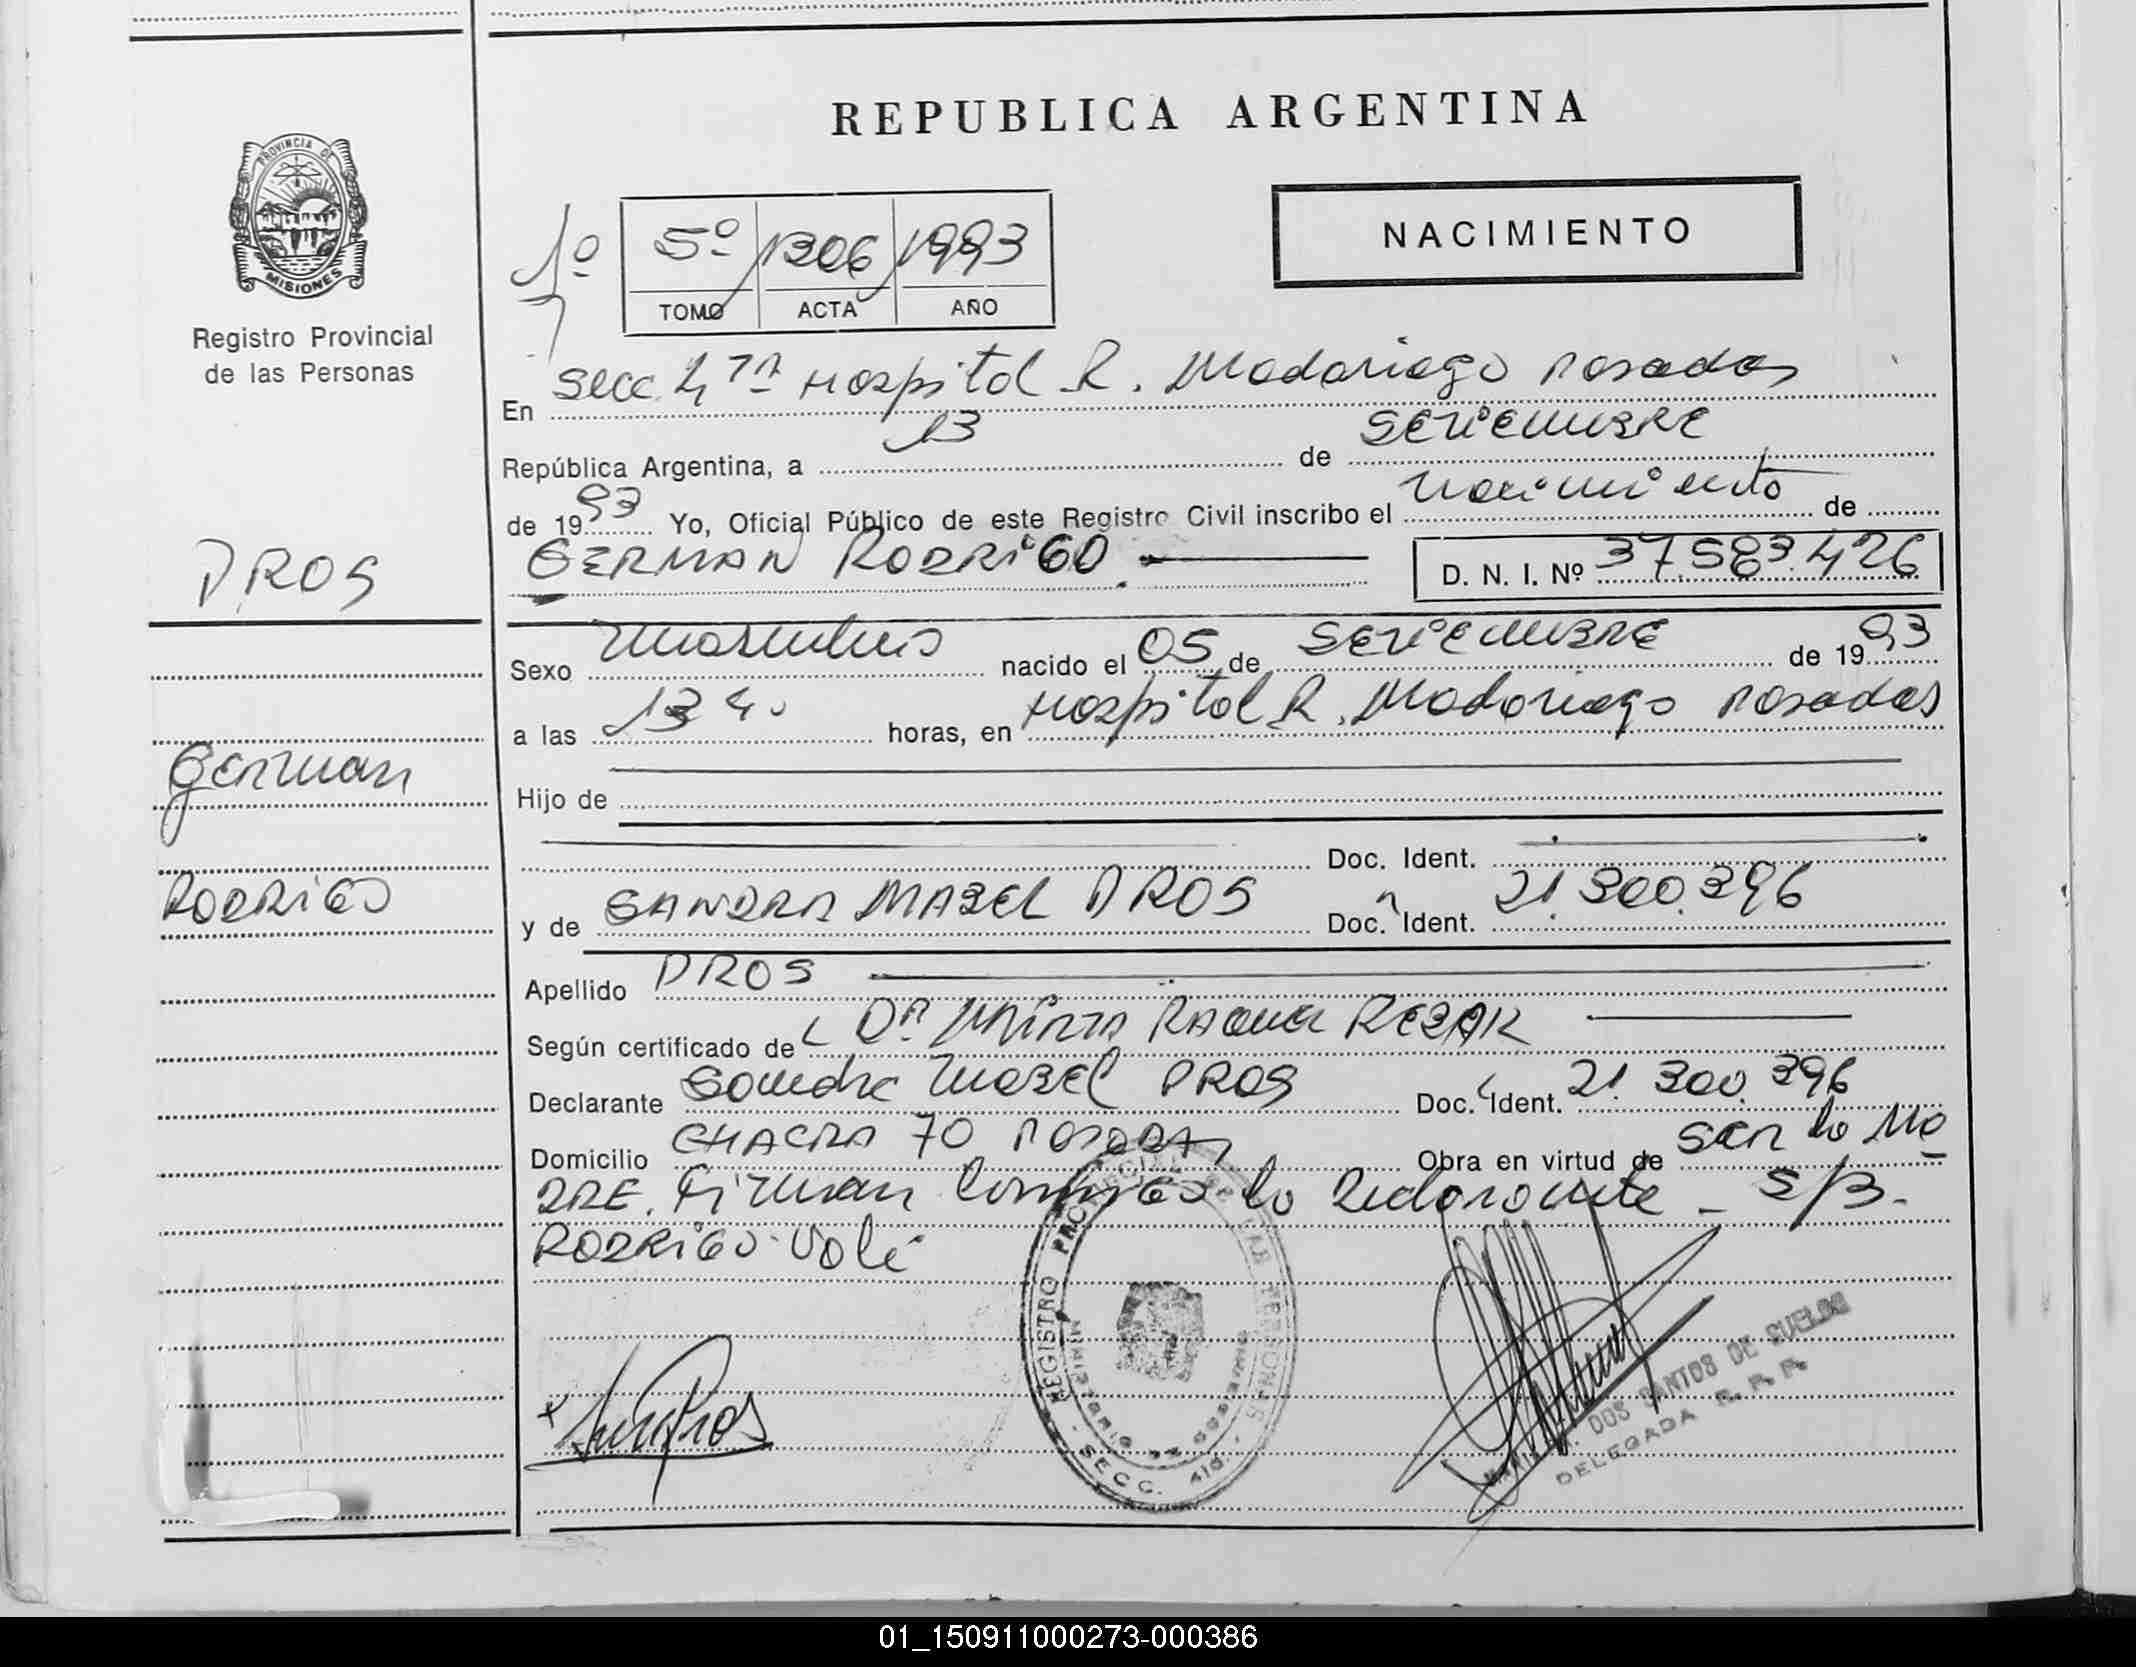 REPUBLICA ARGENTINA
PROVINCIA DE
MISIONES
Registro Provincial
de las Personas
NACIMIENTO
1º
5º 1306 1993
TOMO ACTA AÑO
En Secc 4ta Hospital R. Madariaga Posadas
República Argentina, a 13 de SETIEMBRE
de 1993 Yo, Oficial Público de este Registro Civil inscribo el nacimiento de
GERMAN RODRIGO. D. N. I. Nº 37.583.426
Sexo masculino nacido el 05 de SETIEMBRE de 1993
a las 13 40 horas, en Hospital R. Madariaga Posadas
Hijo de
Doc. Ident.
y de SANDRA MABEL DROS Doc. Ident. 21.300.396
Apellido DROS
Según certificado de Dra MIRTA RAQUEL REZAK
Declarante Sandra MABEL DROS Doc. Ident. 21.300.396
Domicilio CHACRA 70 POSADAS Obra en virtud de SER la MA
DRE. Firman Conmigo la declarante - S/B.
RODRIGO. Vale
DROS
German
RODRIGO
REGISTRO PROVINCIAL DE LAS PERSONAS
MINISTERIO DE GOBIERNO
- SECC. 4ta. -
DOS SANTOS DE SUELDO
DELEGADA R. P. P.
01_150911000273-000386